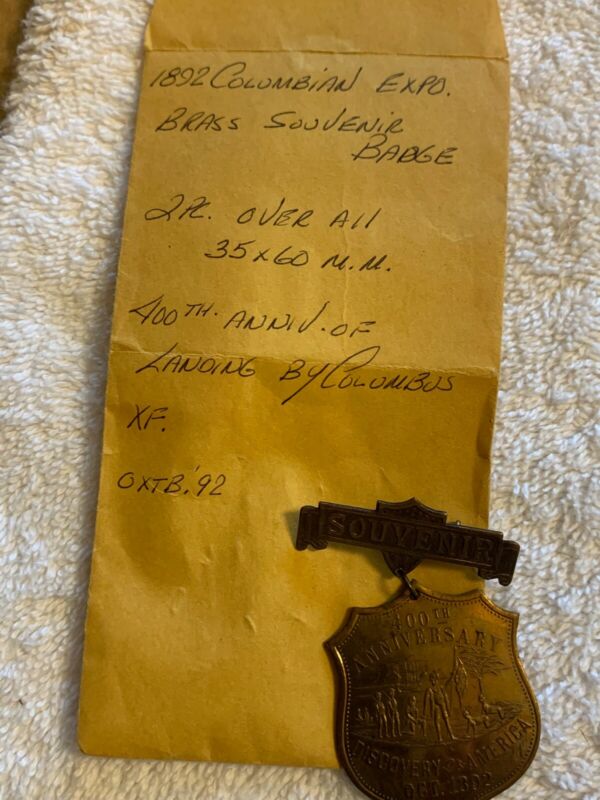 1892 COLUMBIAN EXPO.
BRASS SOUVENIR
BADGE
2 PC. OVER All
35 x 60 M.M.
400TH. ANNIV. OF
LANDING BY COLUMBUS
XF.
OXTB. '92
SOUVENIR
400TH
ANNIVERSARY
DISCOVERY OF AMERICA
OCT. 1892